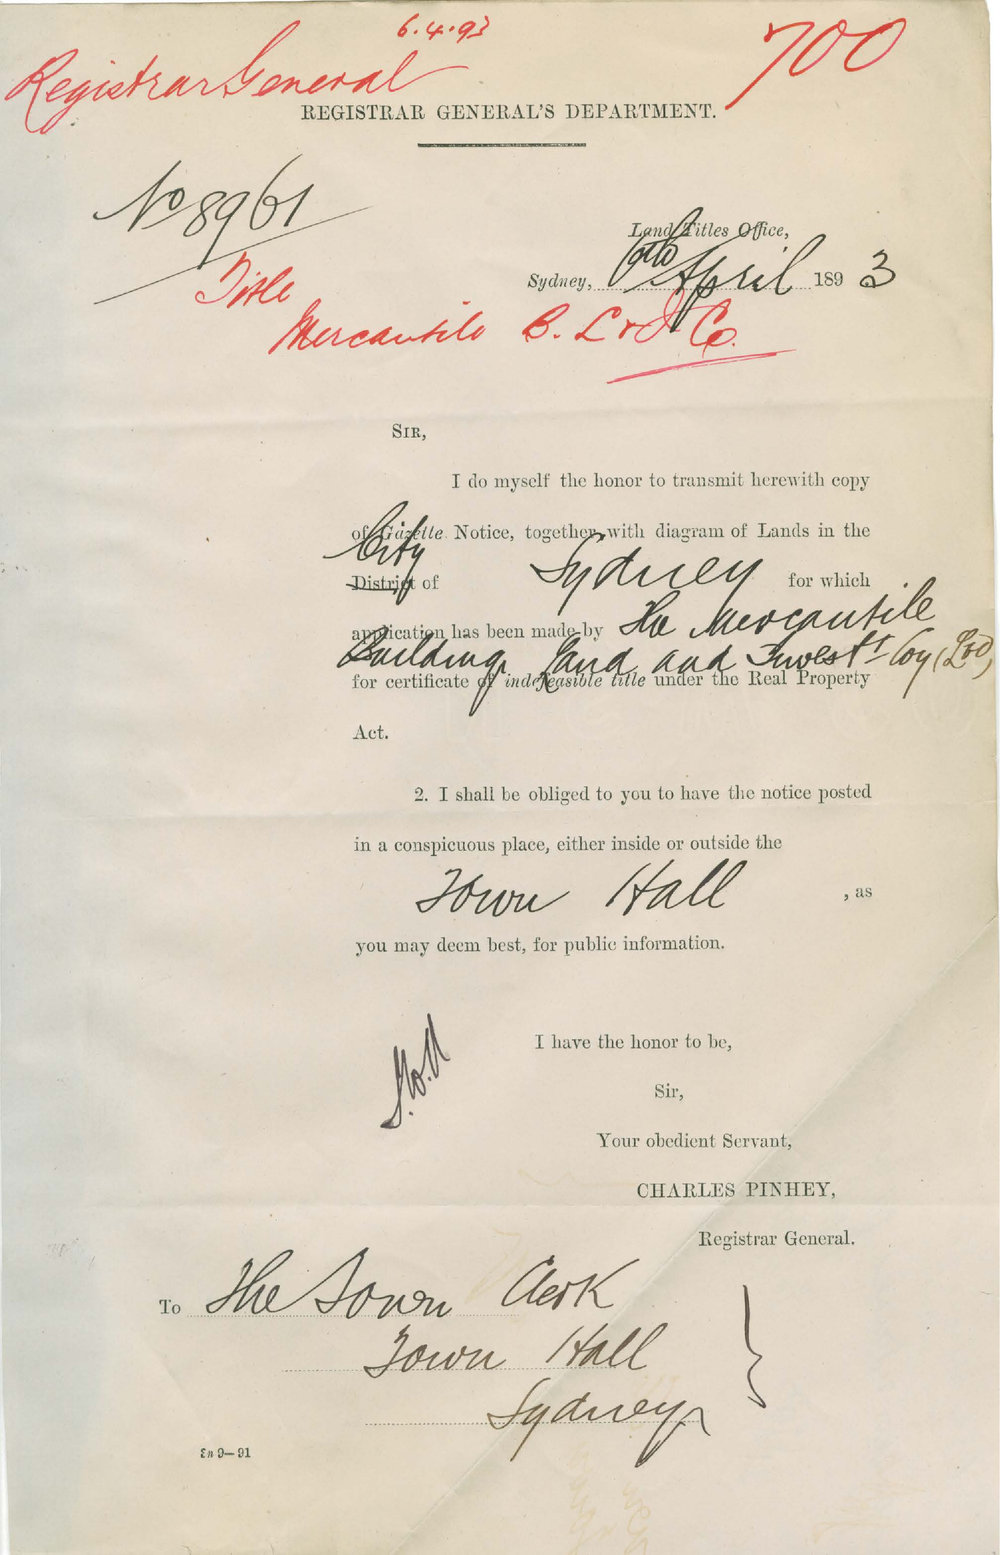 6.4.93
700
Registrar General
REGISTRAR GENERAL'S DEPARTMENT.
No 8961
Land Titles Office,
Sydney, 6th April 1893
Title
Mercantile B. L & I Co.
SIR,
I do myself the honor to transmit herewith copy
of Gazette Notice, together with diagram of Lands in the
City
District of Sydney for which
application has been made by The Mercantile
Building Land and Invest.t Coy (Ltd)
for certificate of indefeasible title under the Real Property
Act.
2. I shall be obliged to you to have the notice posted
in a conspicuous place, either inside or outside the
Town Hall , as
you may deem best, for public information.
I have the honor to be,
Sir,
Your obedient Servant,
CHARLES PINHEY,
Registrar General.
To The Town Clerk
Town Hall
Sydney
9—91